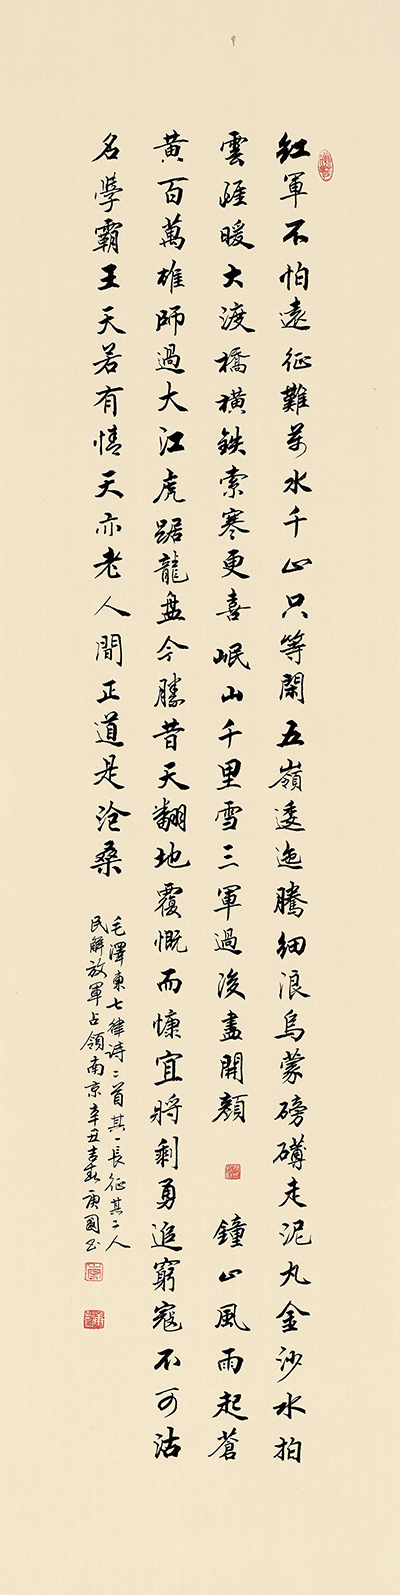 紅軍不怕遠征難萬水千山只等閑五嶺逶迤騰細浪烏蒙磅礴走泥丸金沙水拍
雲崖暖大渡橋橫鉄索寒更喜岷山千里雪三軍過後盡開顏 鐘山風雨起蒼
黃百萬雄師過大江虎踞龍盤今勝昔天翻地覆慨而慷宜將剩勇追窮寇不可沽
名學霸王天若有情天亦老人間正道是滄桑
毛澤東七律诗二首其一長征其二人
民解放軍占領南京辛丑吉春庚國書